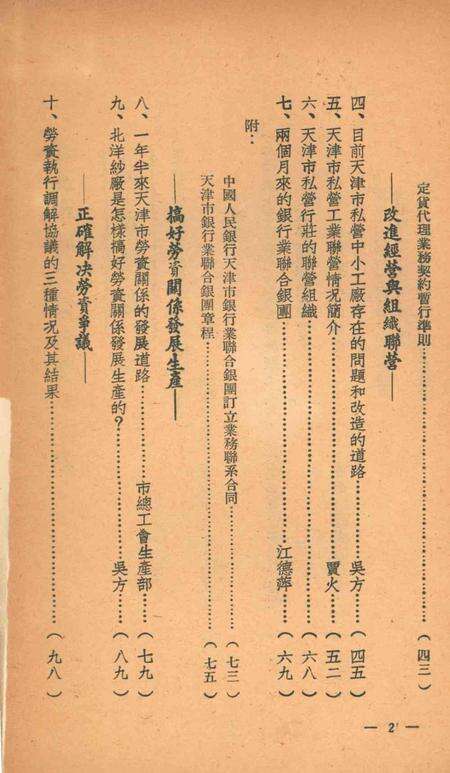 定貨代理業務契約暫行準則……(四三)
——改進經營與組織聯營——
四、目前天津市私營中小工厰存在的問題和改造的道路……吳方……(四五)
五、天津市私營工業聯營情况簡介……賈火……(五二)
六、天津市私營行莊的聯營組織……(六八)
七、兩個月來的銀行業聯合銀團……江德萍……(六九)
附：
中國人民銀行天津市銀行業聯合銀團訂立業務聯系合同……(七三)
天津市銀行業聯合銀團章程……(七五)
——搞好勞資關係發展生產——
八、一年半來天津市勞資關係的發展道路……市總工會生產部……(七九)
九、北洋紗廠是怎樣搞好勞資關係發展生產的？……吳方……(八九)
正確解决勞資爭議——
十、勞資執行調解協議的三種情况及其結果……(九八)
— 2 —